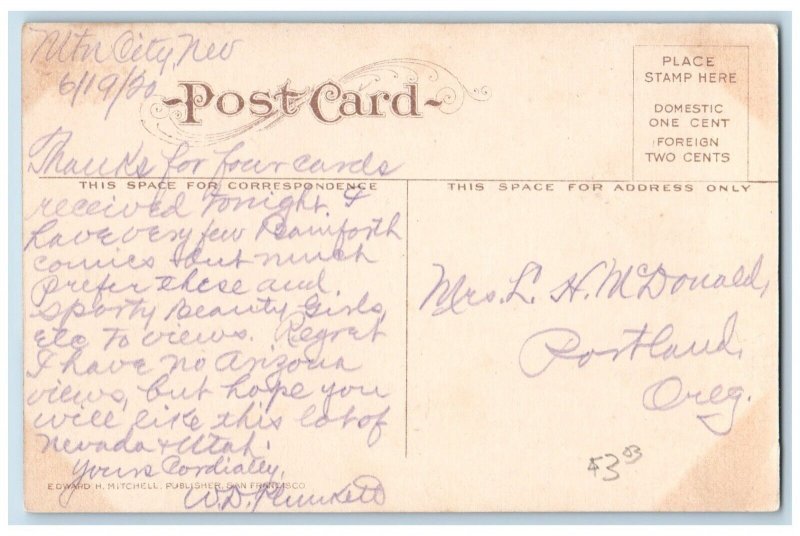 Mtn City, Nev
6/19/20
Post Card
PLACE
STAMP HERE
DOMESTIC
ONE CENT
FOREIGN
TWO CENTS
Thanks for four cards
THIS SPACE FOR CORRESPONDENCE
THIS SPACE FOR ADDRESS ONLY
received tonight. I
have very few Bamforth
comics but much
prefer these and
Sporty Beauty Girls,
etc to views. Regret
I have no Arizona
views, but hope you
will like this lot of
Nevada + Utah.
Yours Cordially,
EDWARD H. MITCHELL, PUBLISHER, SAN FRANCISCO
W.D. Plunkett
Mrs. L. H. McDonald,
Portland,
Oreg.
$3 03